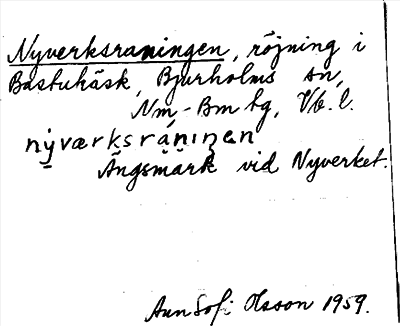 Nyverksraningen, röjning i
Bastuträsk, Bjurholms sn,
Nm-Bm tg, Vb. l.
nyværksräninen
Ängsmark vid Nyverket.
Ann Sofi Olsson 1959.